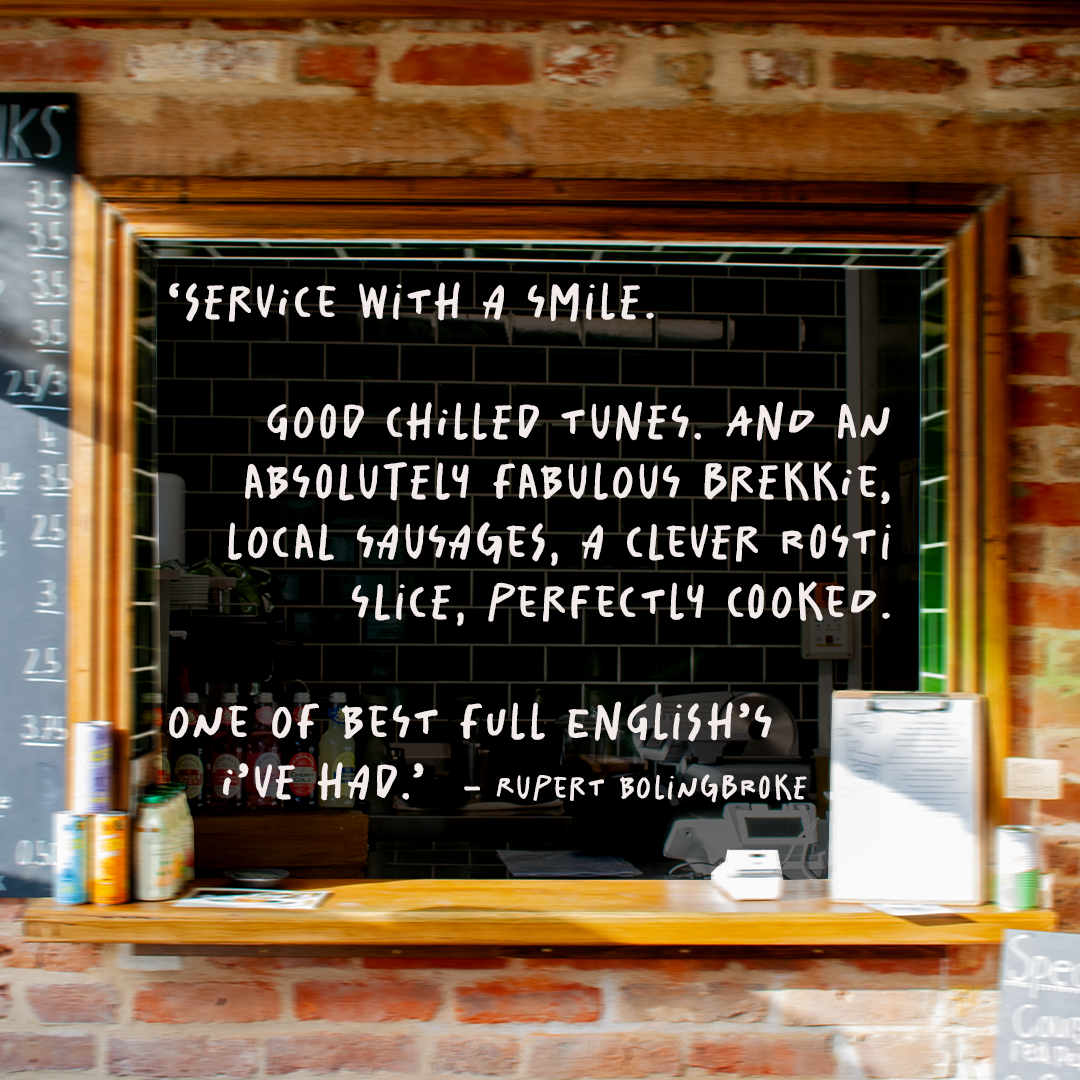 3.5
3.5
3.5
3.5
2.5/3
4
3.5
2.5
3
2.5
3.75
0.50
‘SERVICE WITH A SMILE.
GOOD CHILLED TUNES. AND AN
ABSOLUTELY FABULOUS BREKKIE,
LOCAL SAUSAGES, A CLEVER ROSTI
SLICE, PERFECTLY COOKED.
ONE OF BEST FULL ENGLISH’S
I’VE HAD.’ – RUPERT BOLINGBROKE